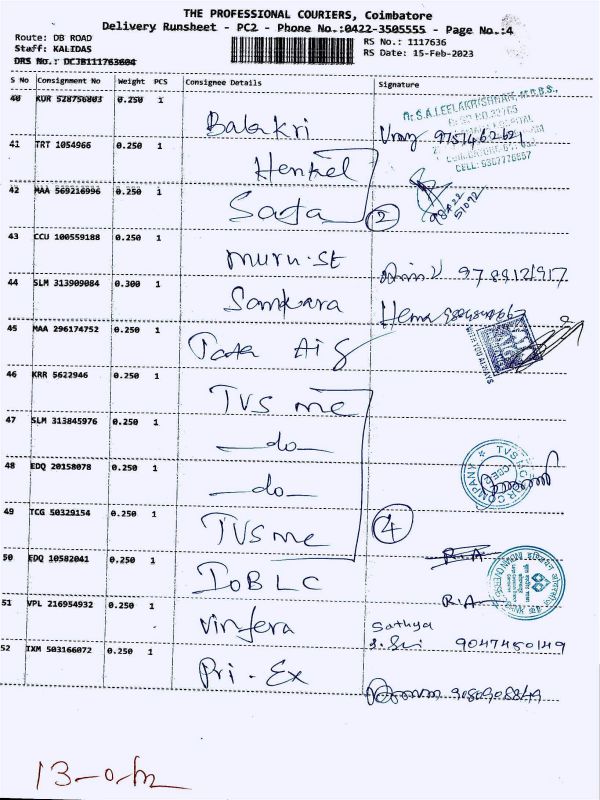 THE PROFESSIONAL COURIERS, Coimbatore
Delivery Runsheet - PC2 - Phone No.:0422-3505555 - Page No.:4
Route: DB ROAD
RS No.: 1117636
Staff: KALIDAS
RS Date: 15-Feb-2023
DRS No.: DCJB111763604
S No Consignment No Weight PCS Consignee Details Signature
40 KUR 528756803 0.250 1 Balakri 9751462621
41 TRT 1054966 0.250 1 Henkel
42 MAA 569216996 0.250 1 Sada 2
43 CCU 100559188 0.250 1 muru.st
44 SLM 313909084 0.300 1 Sankara Hema
45 MAA 296174752 0.250 1 Tata Aig
46 KRR 5622946 0.250 1 TVS me
47 SLM 313845976 0.250 1 —do—
48 EDQ 20158078 0.250 1 —do—
49 TCG 50329154 0.250 1 TVS me 4
50 EDQ 10582041 0.250 1 IOBLC R.A
51 VPL 216954932 0.250 1 vinfera Sathya
9047450149
52 IXM 503166072 0.250 1 Pri-Ex